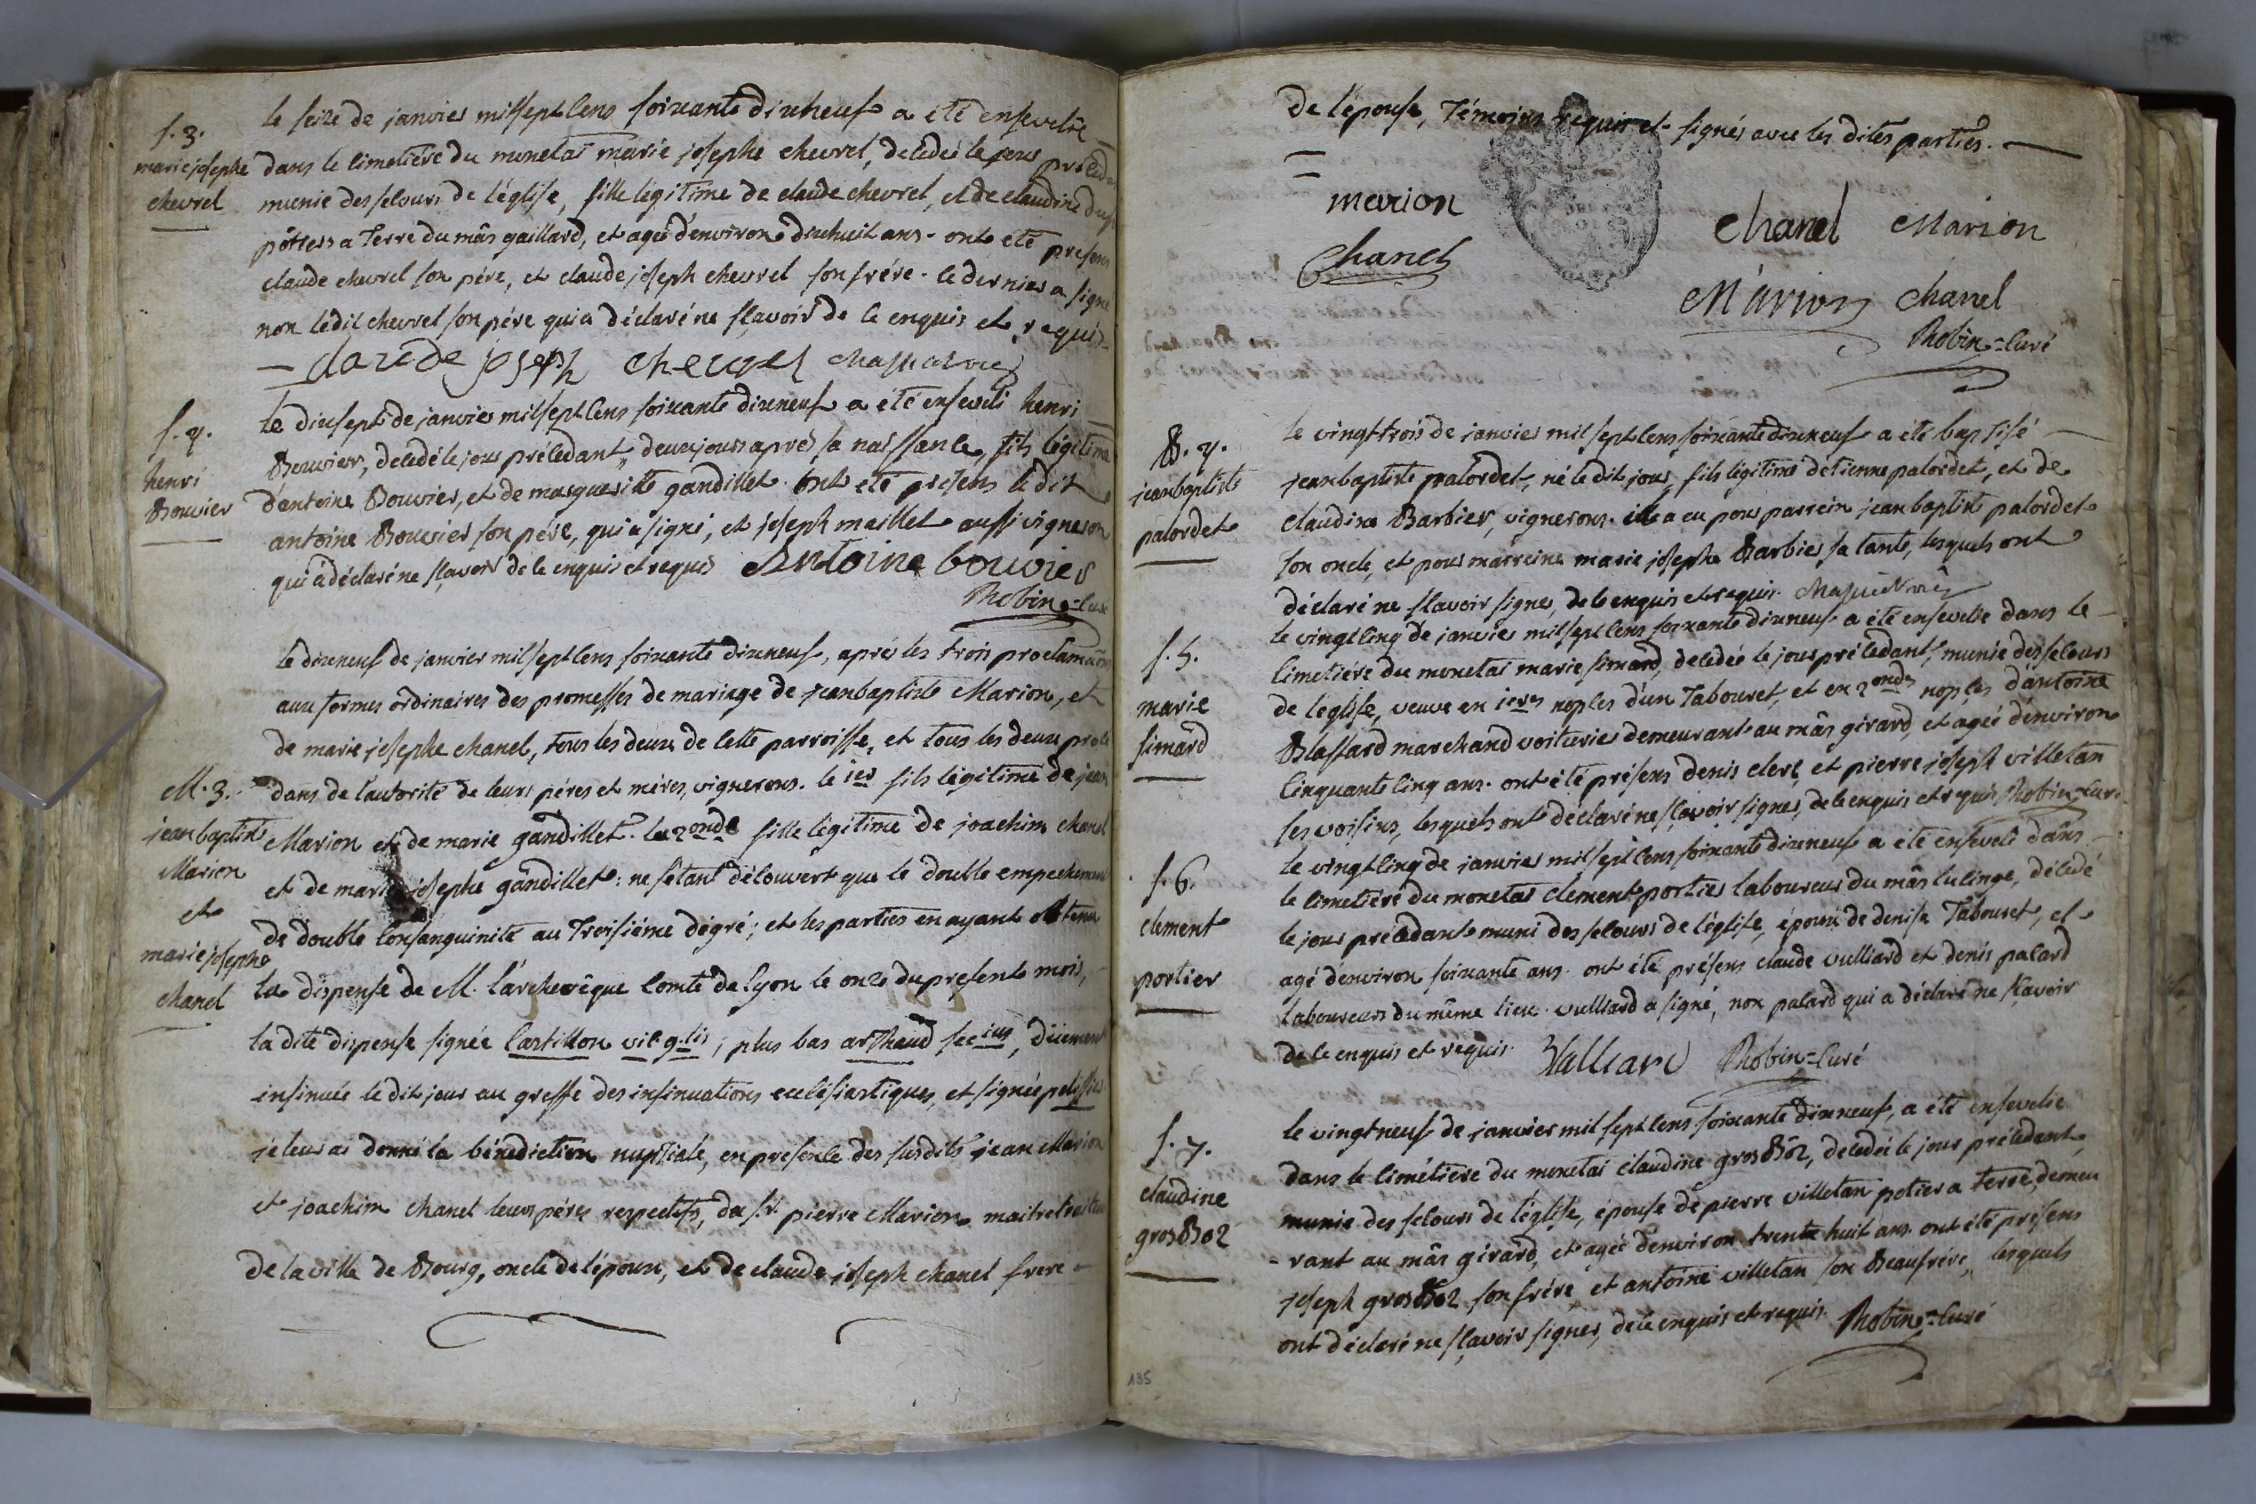 f. 3.
marie josephe
chevrel
le seize de janvier mil sept cens soixante dixneuf a été ensevelie
dans le cimetière du monetai marie josephe chevrel, decedée le jour
munie des secours de l'église, fille légitime de claude chevrel, et de claudine
pôtiers a Terre du mâs gaillard, et agée d'environ dixhuit ans. ont été presens
claude chevrel son pére, et claude joseph chevrel son frére. ce dernier a signé
non ledit chevrel son pére qui a déclaré ne sçavoir de ce enquis et requis
claude joseph chevrel
f. 4.
henri
Bouvier
Le dixsept de janvier mil sept cens soixante dixneuf a été enseveli henri
Bouvier, decedé le jour précédant, deux jours aprés sa naissance, fils légitime
d'antoine Bouvier, et de marguerite gandillet. ont été presens ledit
antoine Bouvier son pére, qui a signé, et joseph maillet aussi vigneron
qui a déclaré ne sçavoir de ce enquis et requis Antoine bouvier
Robin=curé
M. 3.
jean baptiste
Marion
et
marie josephe
chanel
le dixneuf de janvier mil sept cens soixante dixneuf, aprés les trois proclamâons
aux formes ordinaires des promesses de mariage de jean baptiste Marion, et
de marie josephe chanel, tous les deux de cette parroisse, et tous les deux procé
dans de l'autorité de leurs péres et méres, vignerons. le 1er fils légitime de jean
Marion et de marie gandillet. la 2onde fille légitime de joachim chanel
et de marie josephe gandillet: ne s'étant découvert que le double empechement
de double consanguinité au Troisiéme dégré; et les parties en ayant obtenu
la dispense de M. l'archevêque comte de lyon le onze du present mois,
la dite dispense signée Castillon vic. g.lis; plus bas arthaud secius, duement
insinuée le dit jour au greffe des insinuations ecclésiastiques, et signée
je leur ai donné la bénédiction nuptiale, en presence des susdits jean Marion
et joachim chanel leurs péres respectifs, du sr. pierre Marion maitre
de la ville de Bourg, oncle de l'époux, et de claude joseph chanel frere
de l'épouse, Témoins requis et signés avec les dites parties.
marion
chanel Marion
Chanel
Marion chanel
Robin=curé
B. 4.
jean baptiste
palordet
Le vingt trois de janvier mil sept cens soixante dixneuf a été baptisé
jean baptiste palordet, né le dit jour, fils légitime d'etienne palordet, et de
claudine Barbier, vignerons. il a eu pour parrein jean baptiste palordet
son oncle, et pour marreine marie josephe Barbier sa tante, lesquels ont
déclaré ne sçavoir signer, de ce enquis et requis.
f. 5.
marie
simard
le vingt cinq de janvier mil sept cens soixante dixneuf a été ensevelie dans le
cimetiére du monetai marie simard, decedée le jour précédant, munie des secours
de l'église, veuve en 1eres nopces d'un Tabouret, et en 2ondes nopces d'antoine
Blassard marchand voiturier demeurant au mâs girard, et agée d'environ
cinquante cinq ans. ont été présens denis clerc et pierre joseph villetan
ses voisins, lesquels ont déclaré ne sçavoir signer, de ce enquis et requis Robin=curé
f. 6.
clement
portier
le vingt cinq de janvier mil sept cens soixante dixneuf a été enseveli dans
le cimetiére du monetai clement portier laboureur du mâs culinge, décédé
le jour précédant muni des secours de l'église, époux de denise Tabouret, et
agé d'environ soixante ans. ont été présens claude vulliard et denis palard
laboureurs du même lieu. vulliard a signé, non palard qui a déclaré ne sçavoir
de ce enquis et requis. Vulliard Robin=curé
f. 7.
claudine
grosBoz
le vingtneuf de janvier mil sept cens soixante dixneuf, a été ensevelie
dans le cimétiére du monetai claudine grosBoz, decedée le jour précédant,
munie des secours de l'église, épouse de pierre villetan potier a terre, demeu
-rant au mâs girard, et agée d'environ trente huit ans. ont été présens
joseph grosBoz son frére, et antoine villetan son Beaufrere, lesquels
ont déclaré ne sçavoir signer, de ce enquis et requis. Robin=curé
135